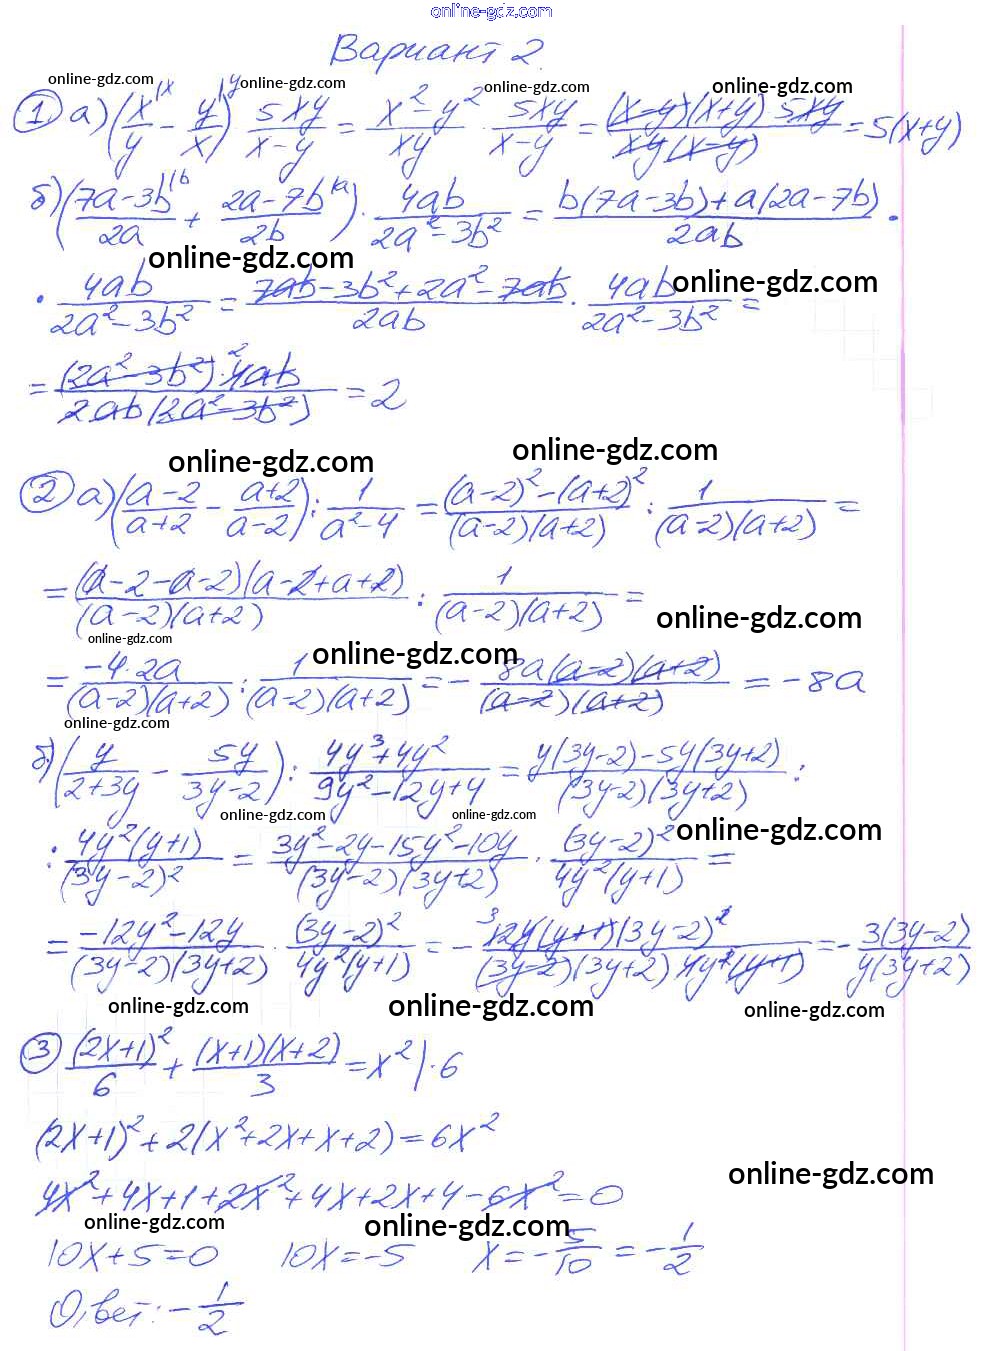 online-gdz.com
Вариант 2.
online-gdz.com online-gdz.com online-gdz.com
① а) (x/y |x - y/x |y) 5xy/(x-y) = (x²-y²)/(xy) · 5xy/(x-y) = ((x-y)(x+y) 5xy)/(xy(x-y)) = 5(x+y)
б) ((7a-3b)/(2a) |b + (2a-7b)/(2b) |a) · 4ab/(2a²-3b²) = (b(7a-3b)+a(2a-7b))/(2ab) ·
online-gdz.com
online-gdz.com
· 4ab/(2a²-3b²) = (7ab-3b²+2a²-7ab)/(2ab) · 4ab/(2a²-3b²) =
= ((2a²-3b²)·4ab 2)/(2ab(2a²-3b²)) = 2
online-gdz.com online-gdz.com
② а) ((a-2)/(a+2) - (a+2)/(a-2)) : 1/(a²-4) = ((a-2)²-(a+2)²)/((a-2)(a+2)) : 1/((a-2)(a+2)) =
= ((a-2-a-2)(a-2+a+2))/((a-2)(a+2)) : 1/((a-2)(a+2)) =
online-gdz.com
online-gdz.com online-gdz.com
= (-4·2a)/((a-2)(a+2)) : 1/((a-2)(a+2)) = - (8a(a-2)(a+2))/((a-2)(a+2)) = -8a
online-gdz.com
б) (y/(2+3y) - 5y/(3y-2)) : (4y³+4y²)/(9y²-12y+4) = (y(3y-2)-5y(3y+2))/((3y-2)(3y+2)) :
online-gdz.com online-gdz.com online-gdz.com
: (4y²(y+1))/((3y-2)²) = (3y²-2y-15y²-10y)/((3y-2)(3y+2)) · ((3y-2)²)/(4y²(y+1)) =
= (-12y²-12y)/((3y-2)(3y+2)) · ((3y-2)²)/(4y²(y+1)) = - (3 12y(y+1)(3y-2)²)/((3y-2)(3y+2) 4y²(y+1)) = - (3(3y-2))/(y(3y+2))
online-gdz.com online-gdz.com online-gdz.com
③ ((2x+1)²)/6 + ((x+1)(x+2))/3 = x² |·6
(2x+1)²+2(x²+2x+x+2)=6x²
online-gdz.com
4x²+4x+1+2x²+4x+2x+4-6x²=0
online-gdz.com online-gdz.com
10x+5=0 10x=-5 x=-5/10=-1/2
Ответ: -1/2